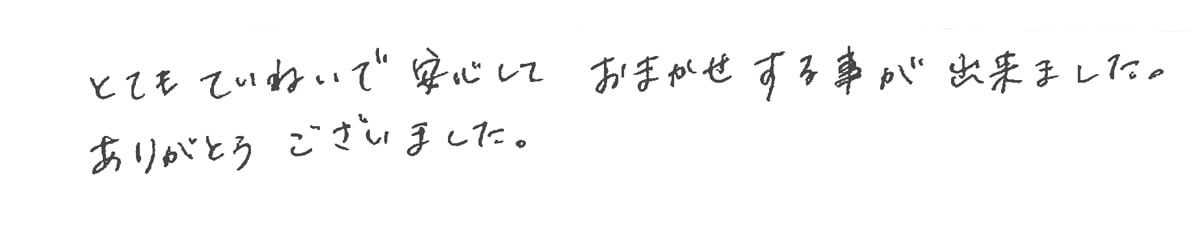 とてもていねいで 安心して おまかせする事が 出来ました。
ありがとう ございました。